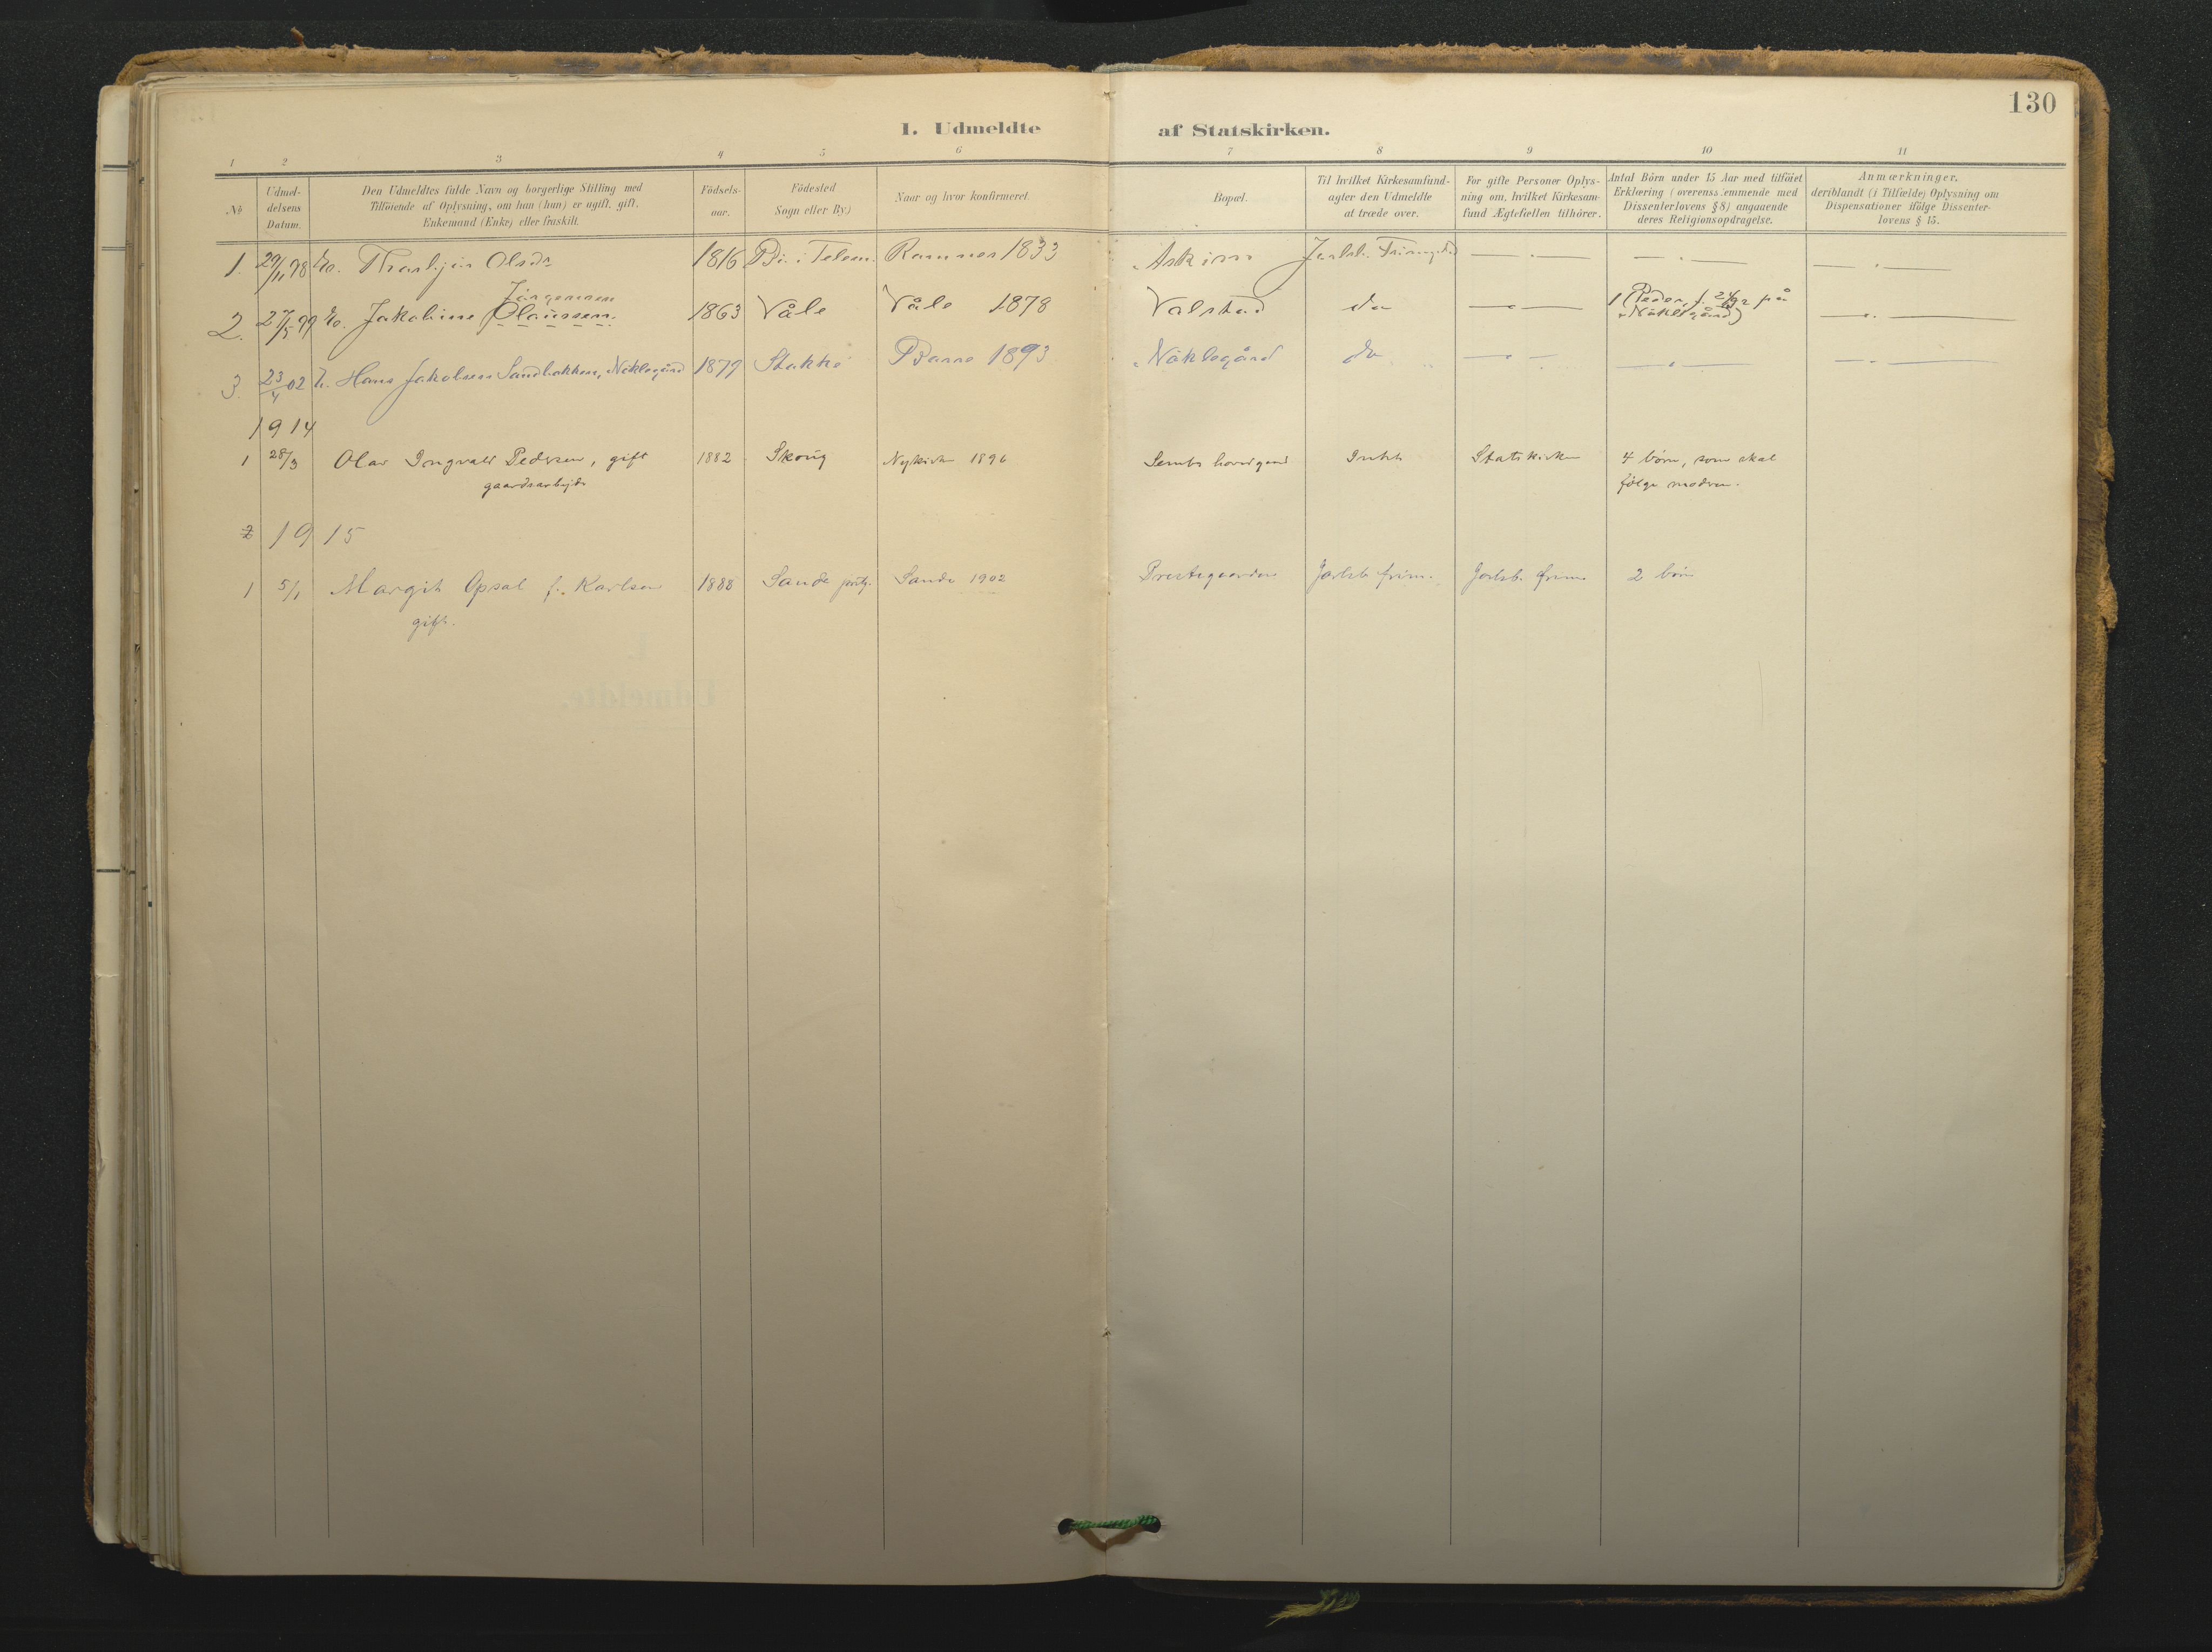 130
I. Udmeldte af Statskirken.
1 2 3 4 5 6 7 8 9 10 11
No
Udmel-
delsens
Datum.
Den Udmeldtes fulde Navn og borgerlige Stilling med
Tilföiende af Oplysning, om han (hun) er ugift, gift,
Enkemand (Enke) eller fraskilt.
Födsels-
aar.
Födested
Sogn eller By)
Naar og hvor konfirmeret.
Bopæl.
Til hvilket Kirkesamfund-
agter den Udmeldte
at træde over.
For gifte Personer Oplys-
ning om, hvilket Kirkesam-
fund Ægtefællen tilhörer.
Antal Börn under 15 Aar med tilföiet
Erklæring (overensstemmende med
Dissenterlovens § 8) angaaende
deres Religionsopdragelse.
Anmærkninger,
deriblandt (i Tilfælde) Oplysning om
Dispensationer ifölge Dissenter-
lovens § 15.
1. 29/11 98 Olsdr 1816 Bö i Telem. Ramnes 1833 Askim Jarlsb. — " — — " — — " —
Jörgensen
2. 27/5 99 Jakobine Olaussen 1863 Våle Våle 1878 Valstad do — " — 1 (Peder, f. 24/ 92 på — " —
Nöklegård)
3. 23/4 02 Hans Jakobsen Sandbakken, Nöklegård 1879 Stokke Borre 1893 Nöklegård do — " — — " — — " —
1914
1 28/3 Olav Ingvald Pedersen, gift 1882 Skoug Nykirke 1896 Sembs hovedgaard Statskirken 4 börn, som skal
gaardsarbejder
fölge modren.
2 1915
1 5/1 Margit Opsal f. Karlsen 1888 Sande prstg. Sande 1902 Prestegaarden Jarlsb. frim. Jarlsb. frim. 2 börn
gift.